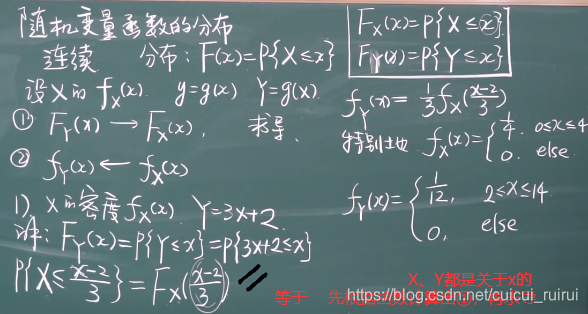 随机变量函数的分布
连续 分布: F(x)=P{X≤x}
设X的 f_X(x). y=g(x) Y=g(X)
① F_Y(x) → F_X(x), 求导.
② f_Y(x) ← f_X(x)
1) X的密度f_X(x). Y=3X+2.
F_Y(x)=P{Y≤x}=P{3X+2≤x}
P{X≤(x-2)/3}=F_X((x-2)/3)
F_X(x)=P{X≤x}.
F_Y(x)=P{Y≤x}
f_Y(x)=1/3 f_X((x-2)/3)
特别地 f_X(x)={1/4, 0≤x≤4
0, else
f_Y(x)={1/12, 2≤x≤14.
0, else
X、Y都是关于x的
等于
https://blog.csdn.net/cuicui_ruirui